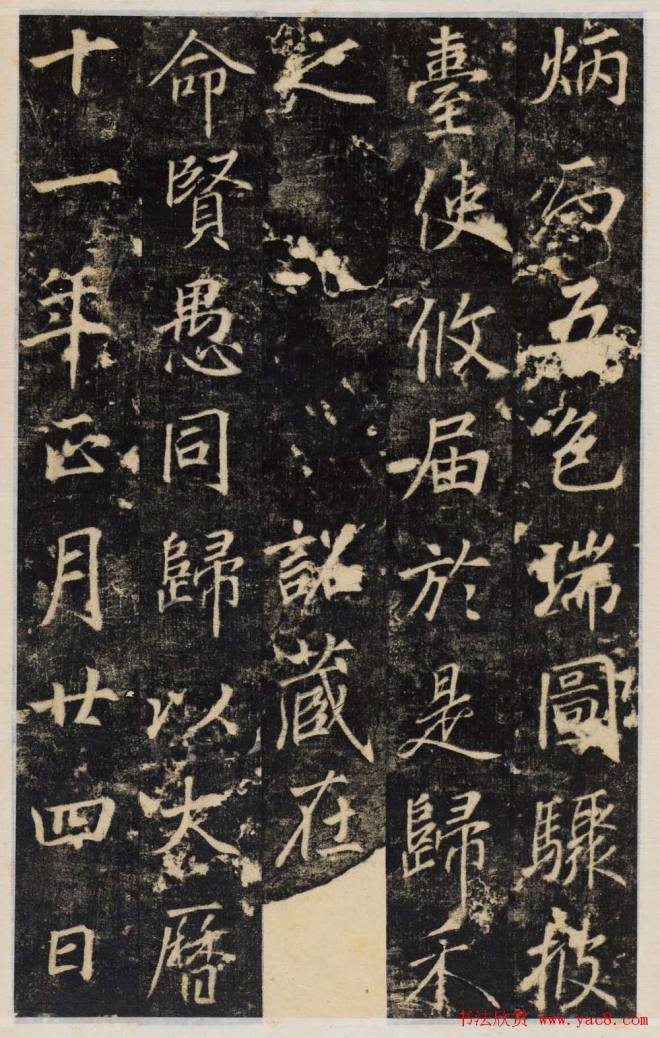 炳而五色瑞圖驟披
臺使攸届於是歸禾
之詔藏在
命賢愚同歸以大曆
十一年正月廿四日
书法欣赏 www.yac8.com